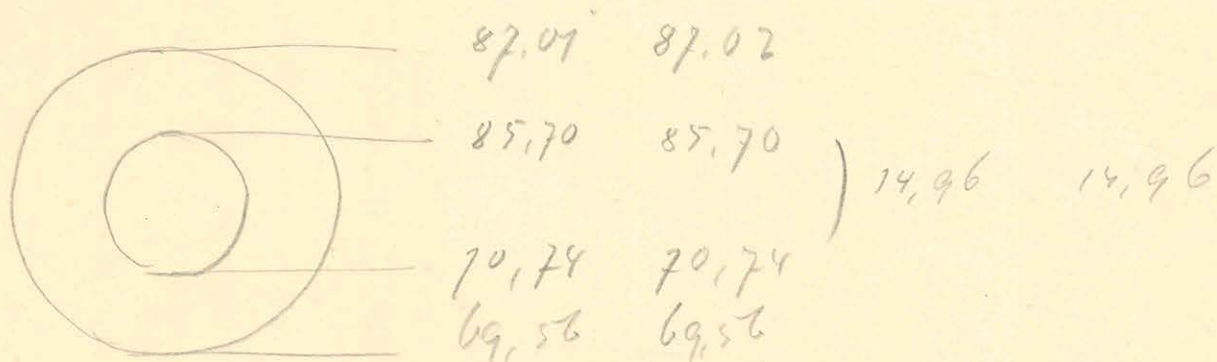 87,01 87,02
85,70 85,70
) 14,96 14,96
70,74 70,74
69,56 69,56